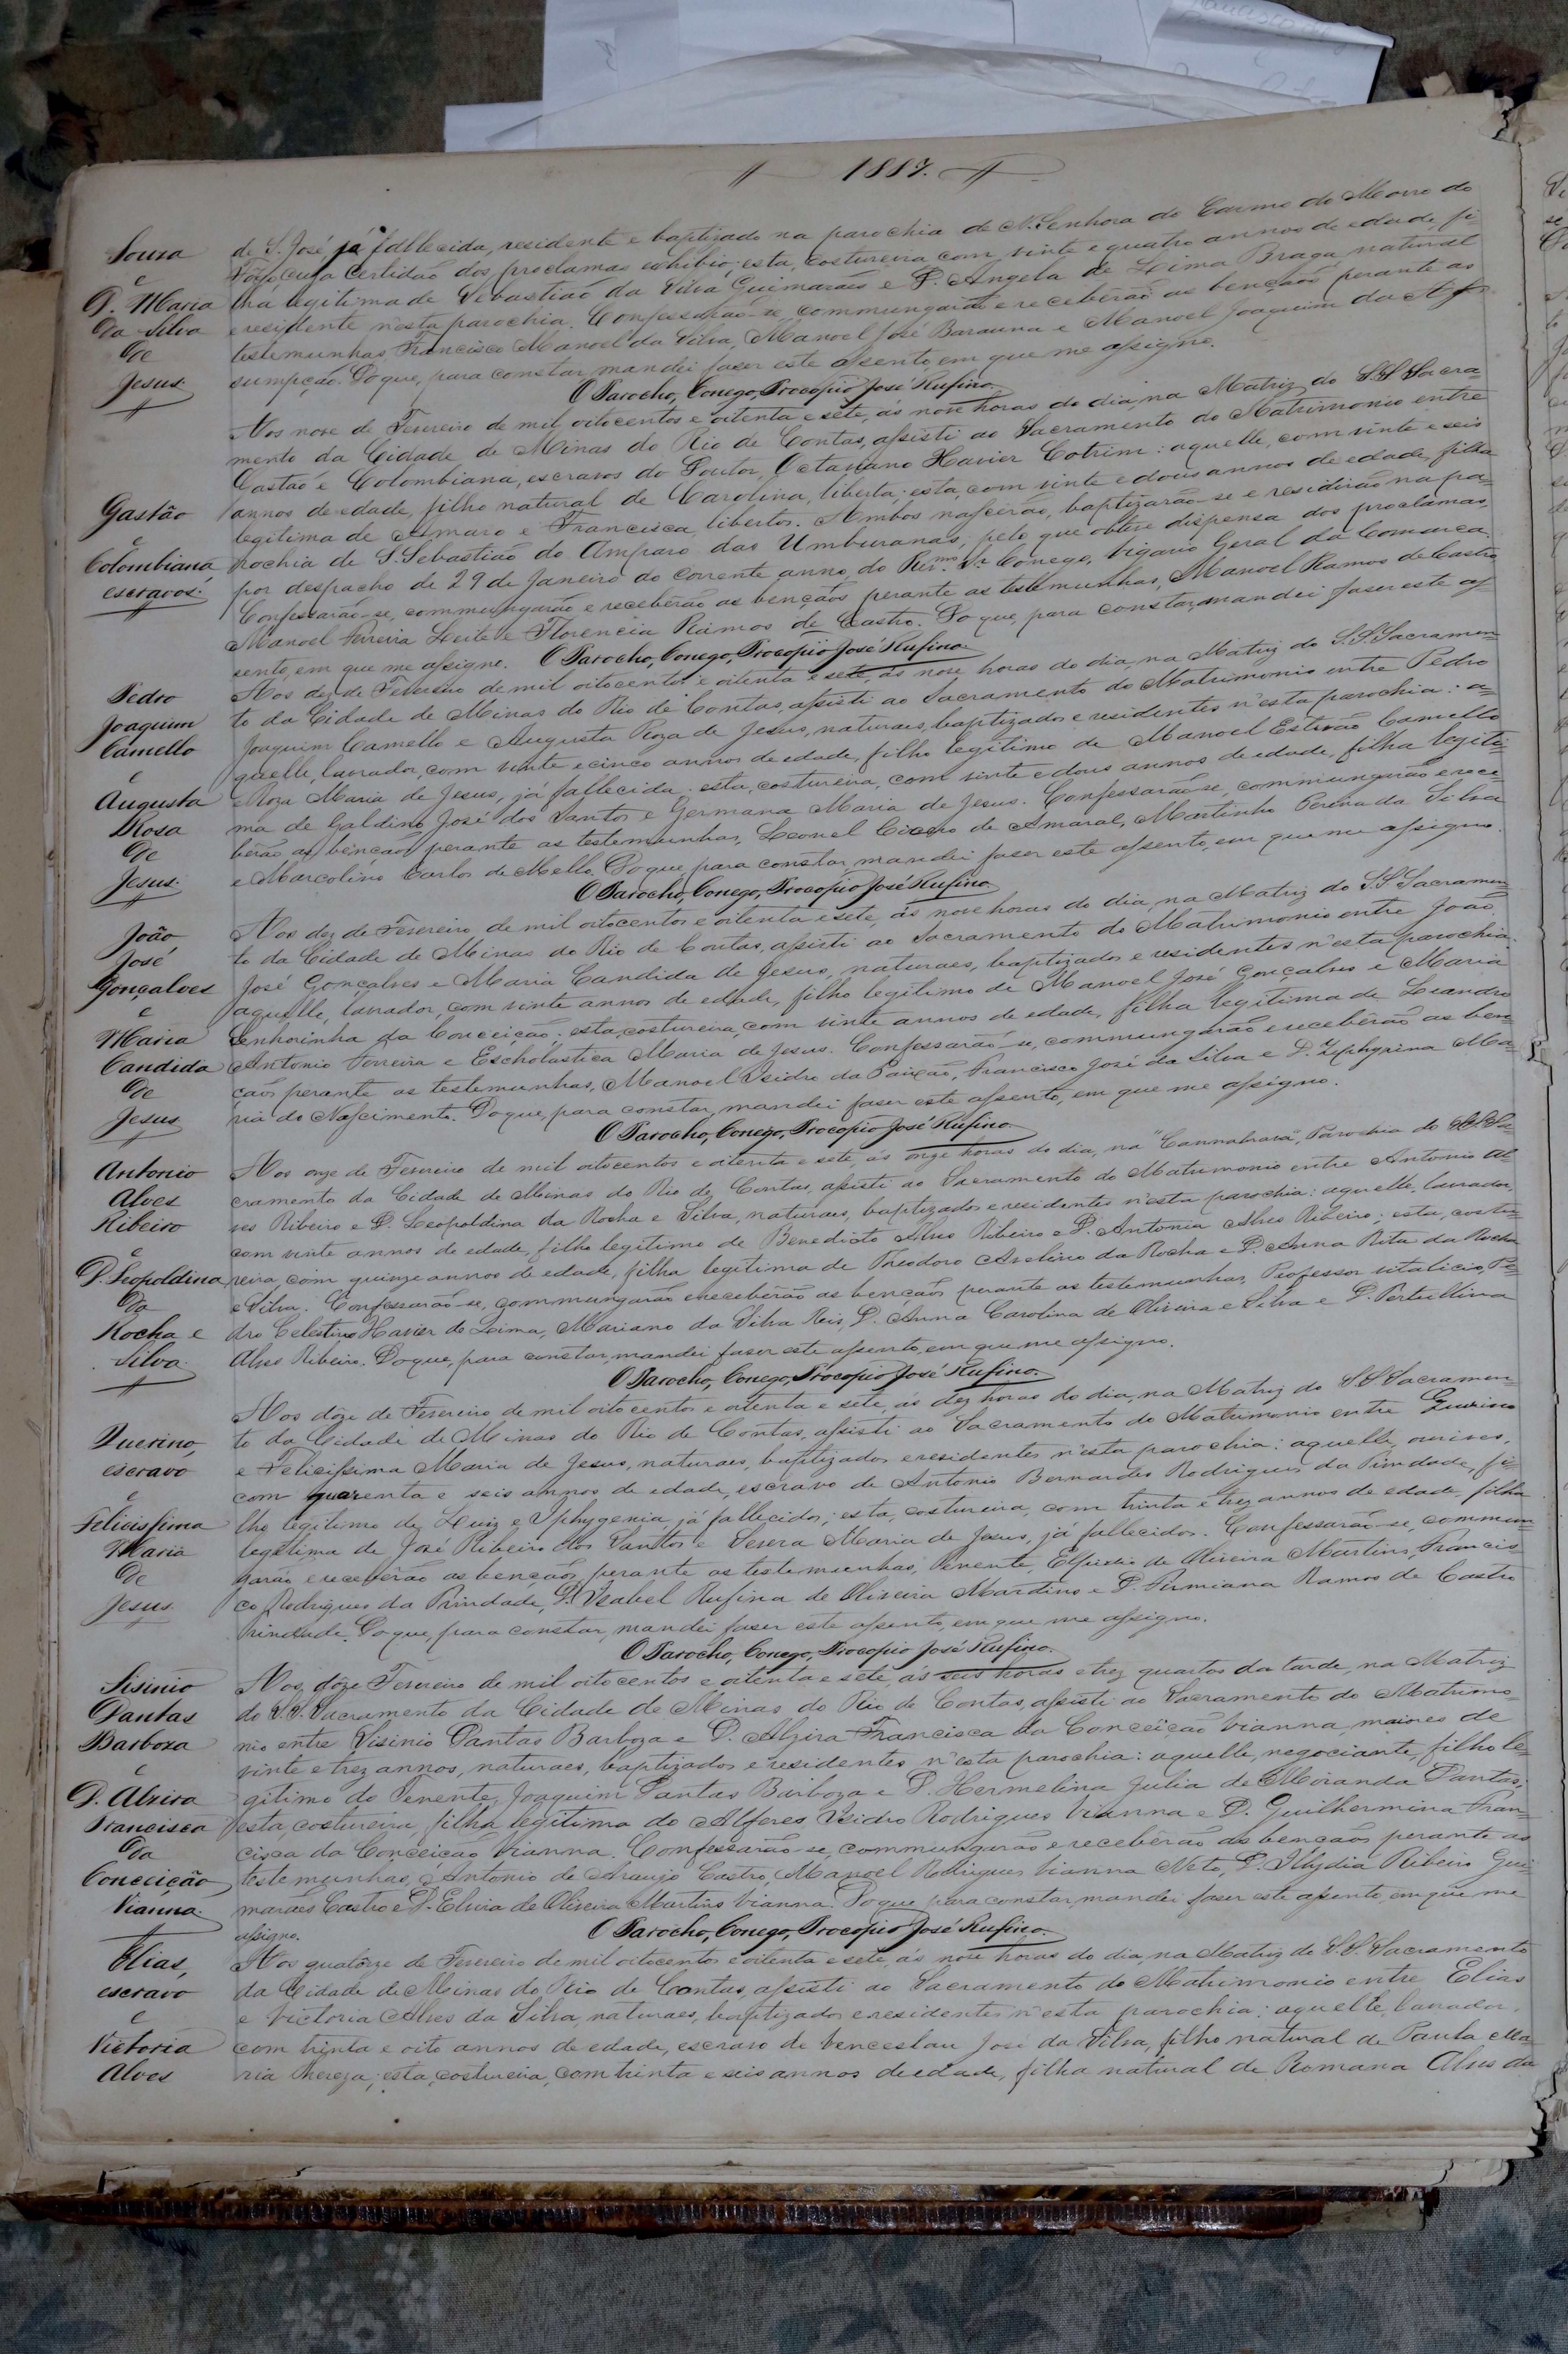 1887.
Souza
e
D. Maria
da Silva
de
Jesus.
de S. José já fallecida, residente e baptizado na parochia de N. Senhora do Carmo do Morro do
Fogo, cuja certidão dos proclamas exhibio; esta, costureira com vinte e quatro annos de edade, fi-
lha legitima de Sebastião da Silva Guimarães e D. Angela de Lima Braga, natural
e residente n'esta parochia. Confessarão-se, commungarão e receberão as bençãos perante as
testemunhas, Francisco Manoel da Silva, Manoel José Barauna e Manoel Joaquim da As-
sumpção. Do que, para constar, mandei faser este assento, em que me assigno.
O Parocho, Conego, Procopio José Rufino.
Gastão
e
Colombiana,
escravos.
Aos nove de Fevereiro de mil oitocentos e oitenta e sete, ás nove horas do dia, na Matriz do S.S. Sacra-
mento da Cidade de Minas do Rio de Contas, assisti ao Sacramento do Matrimonio entre
Gastão e Colombiana, escravos do Doutor, Octaviano Xavier Cotrim: aquelle, com vinte e seis
annos de edade, filho natural de Carolina, liberta; esta, com vinte e dous annos de edade, filha
legitima de Amaro e Francisca, libertos. Ambos nascerão, baptizarão-se e residirão na pa-
rochia de S. Sebastião do Amparo das Umburanas; pelo que obtive dispensa dos proclamas,
por despacho de 29 de Janeiro do corrente anno, do Rev.mo Sr. Conego, Vigario Geral da Comarca.
Confessarão-se, commungarão e receberão as bençãos perante as testemunhas, Manoel Ramos de Castro,
Manoel Ferreira Leite e Florencia Ramos de Castro. Do que, para constar, mandei faser este as-
sento, em que me assigno. O Parocho, Conego, Procopio José Rufino.
Pedro
Joaquim
Camello
e
Augusta
Rosa
de
Jesus.
Aos dez de Fevereiro de mil oitocentos e oitenta e sete, ás nove horas do dia, na Matriz do S.S. Sacramen-
to da Cidade de Minas do Rio de Contas, assisti ao Sacramento do Matrimonio entre Pedro
Joaquim Camello e Augusta Roza de Jesus, naturaes, baptizados e residentes n'esta parochia: a-
quelle, lavrador, com vinte e cinco annos de edade, filho legitimo de Manoel Estevão Camello
e Roza Maria de Jesus, já fallecida; esta, costureira, com vinte e dous annos de edade, filha legiti-
ma de Galdino José dos Santos e Germana Maria de Jesus. Confessarão-se, commungarão e rece-
berão as bençãos perante as testemunhas, Leonel Cicero de Amaral, Martinho Pereira da Silva
e Marcolino Carlos de Mello. Do que, para constar, mandei faser este assento, em que me assigno.
O Parocho, Conego, Procopio José Rufino.
João
José
Gonçalves
e
Maria
Candida
de
Jesus
Aos dez de Fevereiro, de mil oitocentos e oitenta e sete, ás nove horas do dia, na Matriz do S.S. Sacramen-
to da Cidade de Minas do Rio de Contas, assisti ao Sacramento do Matrimonio entre João
José Gonçalves e Maria Candida de Jesus, naturaes, baptizados e residentes n'esta parochia:
aquelle, lavrador, com vinte annos de edade, filho legitimo de Manoel José Gonçalves e Maria
Senhorinha da Conceição; esta, costureira, com vinte annos de edade, filha legitima de Leandro
Antonio Ferreira e Escholastica Maria de Jesus. Confessarão-se, commungarão e receberão as ben-
çãos perante as testemunhas, Manoel Isidro da Paixão, Francisco José da Silva e D. Zephyrina Ma-
ria do Nascimento. Do que, para constar, mandei faser este assento, em que me assigno.
O Parocho, Conego, Procopio José Rufino.
Antonio
Alves
Ribeiro
e
D. Leopoldina
da
Rocha e
Silva.
Aos onze de Fevereiro de mil oitocentos e oitenta e sete, ás onze horas do dia, na "Cannabrava", Parochia do S.S. Sa-
cramento da Cidade de Minas do Rio de Contas, assisti ao Sacramento do Matrimonio entre Antonio Al-
ves Ribeiro e D. Leopoldina da Rocha e Silva, naturaes, baptizados e residentes n'esta parochia: aquelle, lavrador,
com vinte annos de edade, filho legitimo de Benedicto Alves Ribeiro e D. Antonia Alves Ribeiro; esta, costu-
reira, com quinze annos de edade, filha legitima de Theodoro Avelino da Rocha e D. Anna Rita da Rocha
e Silva. Confessarão-se, commungarão e receberão as bençãos perante as testemunhas, Professor vitalicio, Pe-
dro Celestino Xavier de Lima, Mariano da Silva Reis, D. Anna Carolina de Oliveira e Silva e D. Pertullina
Alves Ribeiro. Do que, para constar, mandei faser este assento, em que me assigno.
O Parocho, Conego, Procopio José Rufino.
Querino,
escravo
e
Felicissima
Maria
de
Jesus.
Aos dôze de Fevereiro de mil oitocentos e oitenta e sete, ás dez horas do dia, na Matriz do S.S. Sacramen-
to da Cidade de Minas do Rio de Contas, assisti ao Sacramento do Matrimonio entre Querino
e Felicissima Maria de Jesus, naturaes, baptizados e residentes n'esta parochia: aquelle, ourives,
com quarenta e seis annos de edade, escravo de Antonio Bernardes Rodrigues da Trindade, fi-
lho legitimo de Luiz e Iphygenia, já fallecidos; esta, costureira, com trinta e trez annos de edade, filha
legitima de José Ribeiro dos Santos e Severa Maria de Jesus, já fallecidos. Confessarão-se, commun-
garão e receberão as bençãos, perante as testemunhas, Tenente, Elpidio de Oliveira Martins, Francis-
co Rodrigues da Trindade, D. Izabel Rufina de Oliveira Martins e D. Firmiana Ramos de Castro
Trindade. Do que, para constar, mandei faser este assento, em que me assigno.
O Parocho, Conego, Procopio José Rufino.
Sisinio
Dantas
Barboza
e
D. Alzira
Francisca
da
Conceição
Vianna.
Aos dôze Fevereiro de mil oitocentos e oitenta e sete, ás seis horas e trez quartos da tarde, na Matriz
do S.S. Sacramento da Cidade de Minas do Rio de Contas, assisti ao Sacramento do Matrimo-
nio entre Sisinio Dantas Barboza e D. Alzira Francisca da Conceição Vianna, maiores de
vinte e trez annos, naturaes, baptizados e residentes n'esta parochia: aquelle, negociante, filho le-
gitimo do Tenente, Joaquim Dantas Barboza e D. Hermelina Julia de Miranda Dantas;
esta, costureira, filha legitima do Alferes, Isidro Rodrigues Vianna e D. Guilhermina Fran-
cisca da Conceição Vianna. Confessarão-se, commungarão e receberão as bençãos perante as
testemunhas, Antonio de Araujo Castro, Manoel Rodrigues Vianna Neto, D. Ilydia Ribeiro Gui-
marães Castro e D. Elvira de Oliveira Martins Vianna. Do que, para constar, mandei faser este assento, em que me
assigno. O Parocho, Conego, Procopio José Rufino.
Elias,
escravo
e
Victoria
Alves
Aos quatorze de Fevereiro de mil oitocentos e oitenta e sete, ás nove horas do dia, na Matriz do S.S. Sacramento
da Cidade de Minas do Rio de Contas, assisti ao Sacramento do Matrimonio entre Elias
e Victoria Alves da Silva, naturaes, baptizados e residentes n'esta parochia: aquelle, lavrador,
com trinta e oito annos de edade, escravo de Venceslau José da Silva, filho natural de Paula Ma-
ria Thereza; esta, costureira, com trinta e seis annos de edade, filha natural de Romana Alves da